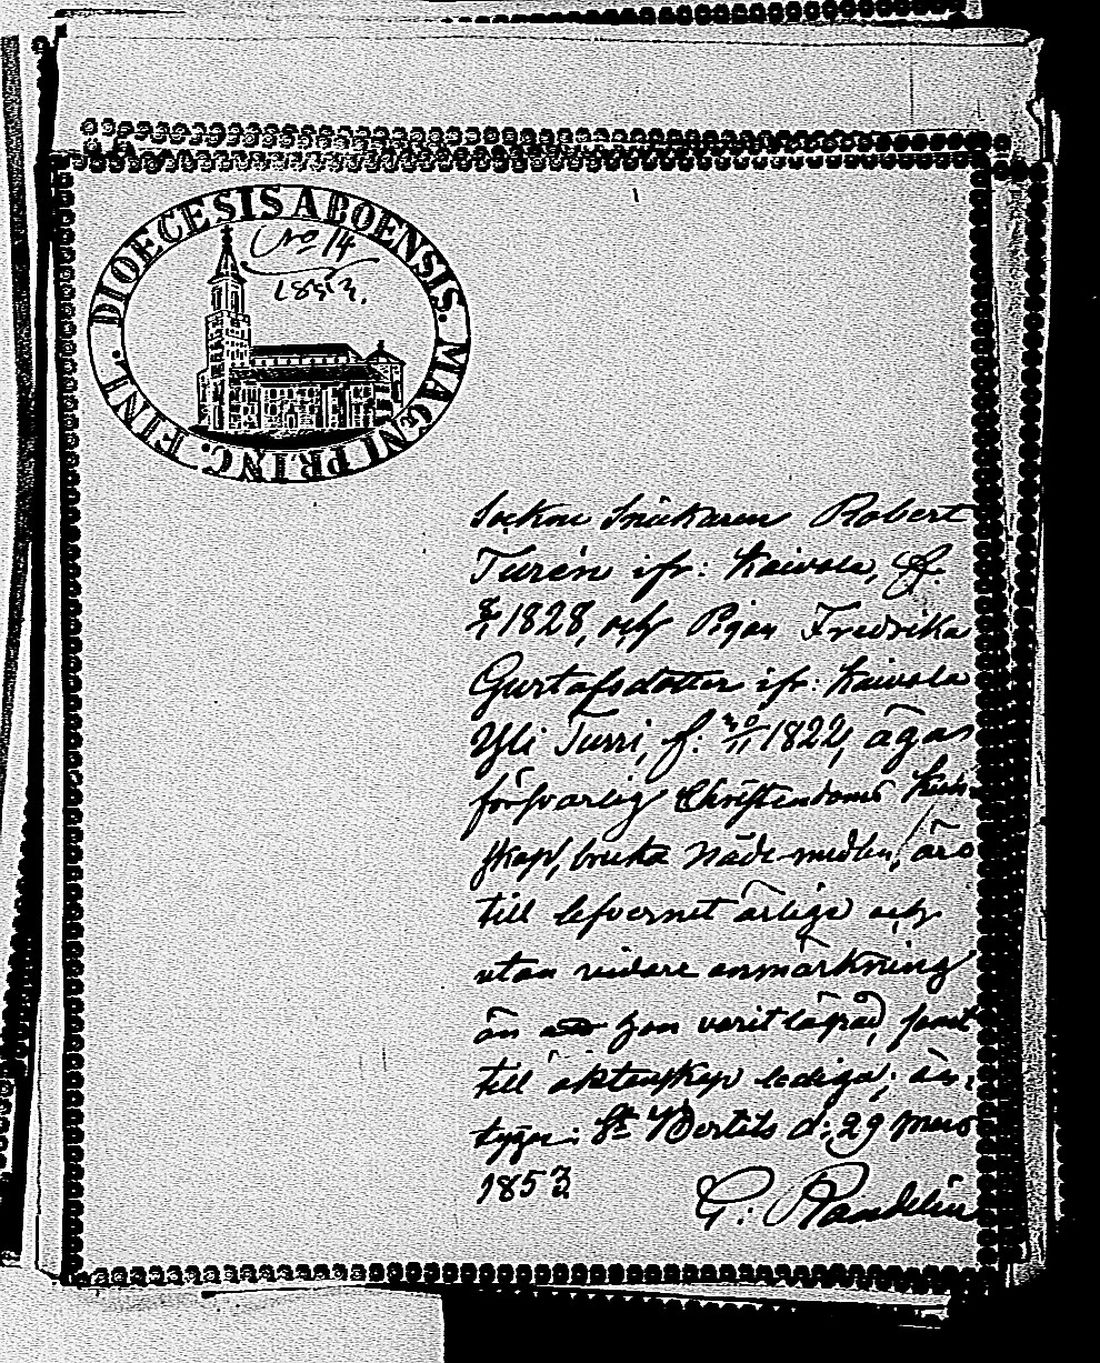 DIOECESIS ABOENSIS. MAGNI PRINC. FINL.
No 14
1853.
Sockne Snickaren Robert
Turén ifr: Kaivola, f.
1828, och Pigan Fredrika
Gustafsdotter ifr: Kaivola
Yli Turri, f. 30/11 1822, äga
försvarlig Christendoms kun-
skap, bruka Nåde-medlen, äro
till lefvernet ärliga och
utan vidare anmärkning
än att hon varit lägrad, samt
till äktenskap lediga; be-
tygar: St Bertils d: 29 Mars
1853
G. Randelin